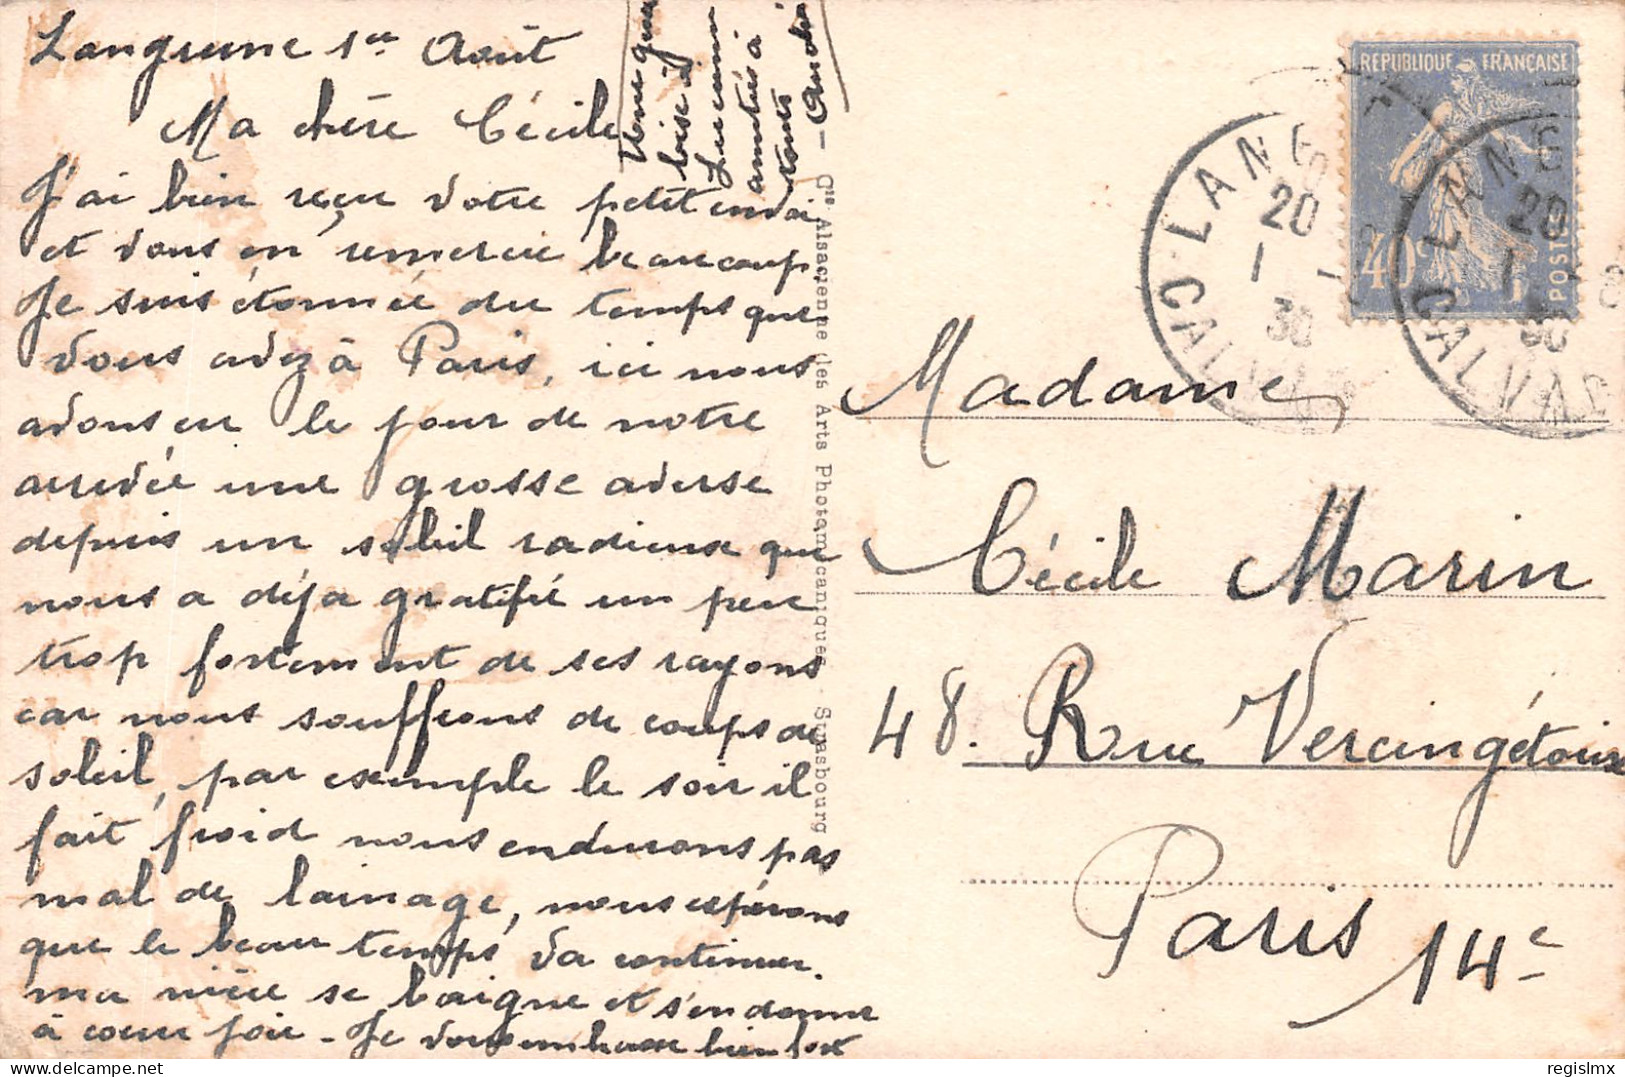 Langrune 1er Août
Ma chère Cécile
J'ai bien reçu votre petit envoi
et vous en remercie beaucoup,
Je suis étonnée du temps que
vous avez à Paris, ici nous
avons eu le jour de notre
arrivée une grosse averse
depuis un soleil radieux qui
nous a déja gratifié un peu
trop fortement de ses rayons
car nous souffrons de coups de
soleil, par exemple le soir il
fait froid nous endurons pas
mal de lainage, nous espérons
que le beau temps va continuer.
ma mère se baigne et s'en donne
à coeur joie - Je vous embrasse bien fort
Une grosse
bise à
amitiés à
tous
Andrée
Cie Alsacienne des Arts Photomécaniques - Strasbourg
RÉPUBLIQUE FRANÇAISE
40c
POSTES
LANG
20
1
30
CALV
LANG
20
1
30
CALVADOS
Madame
Cécile Marin
48. Rue Vercingétorix
Paris 14e
regislmx